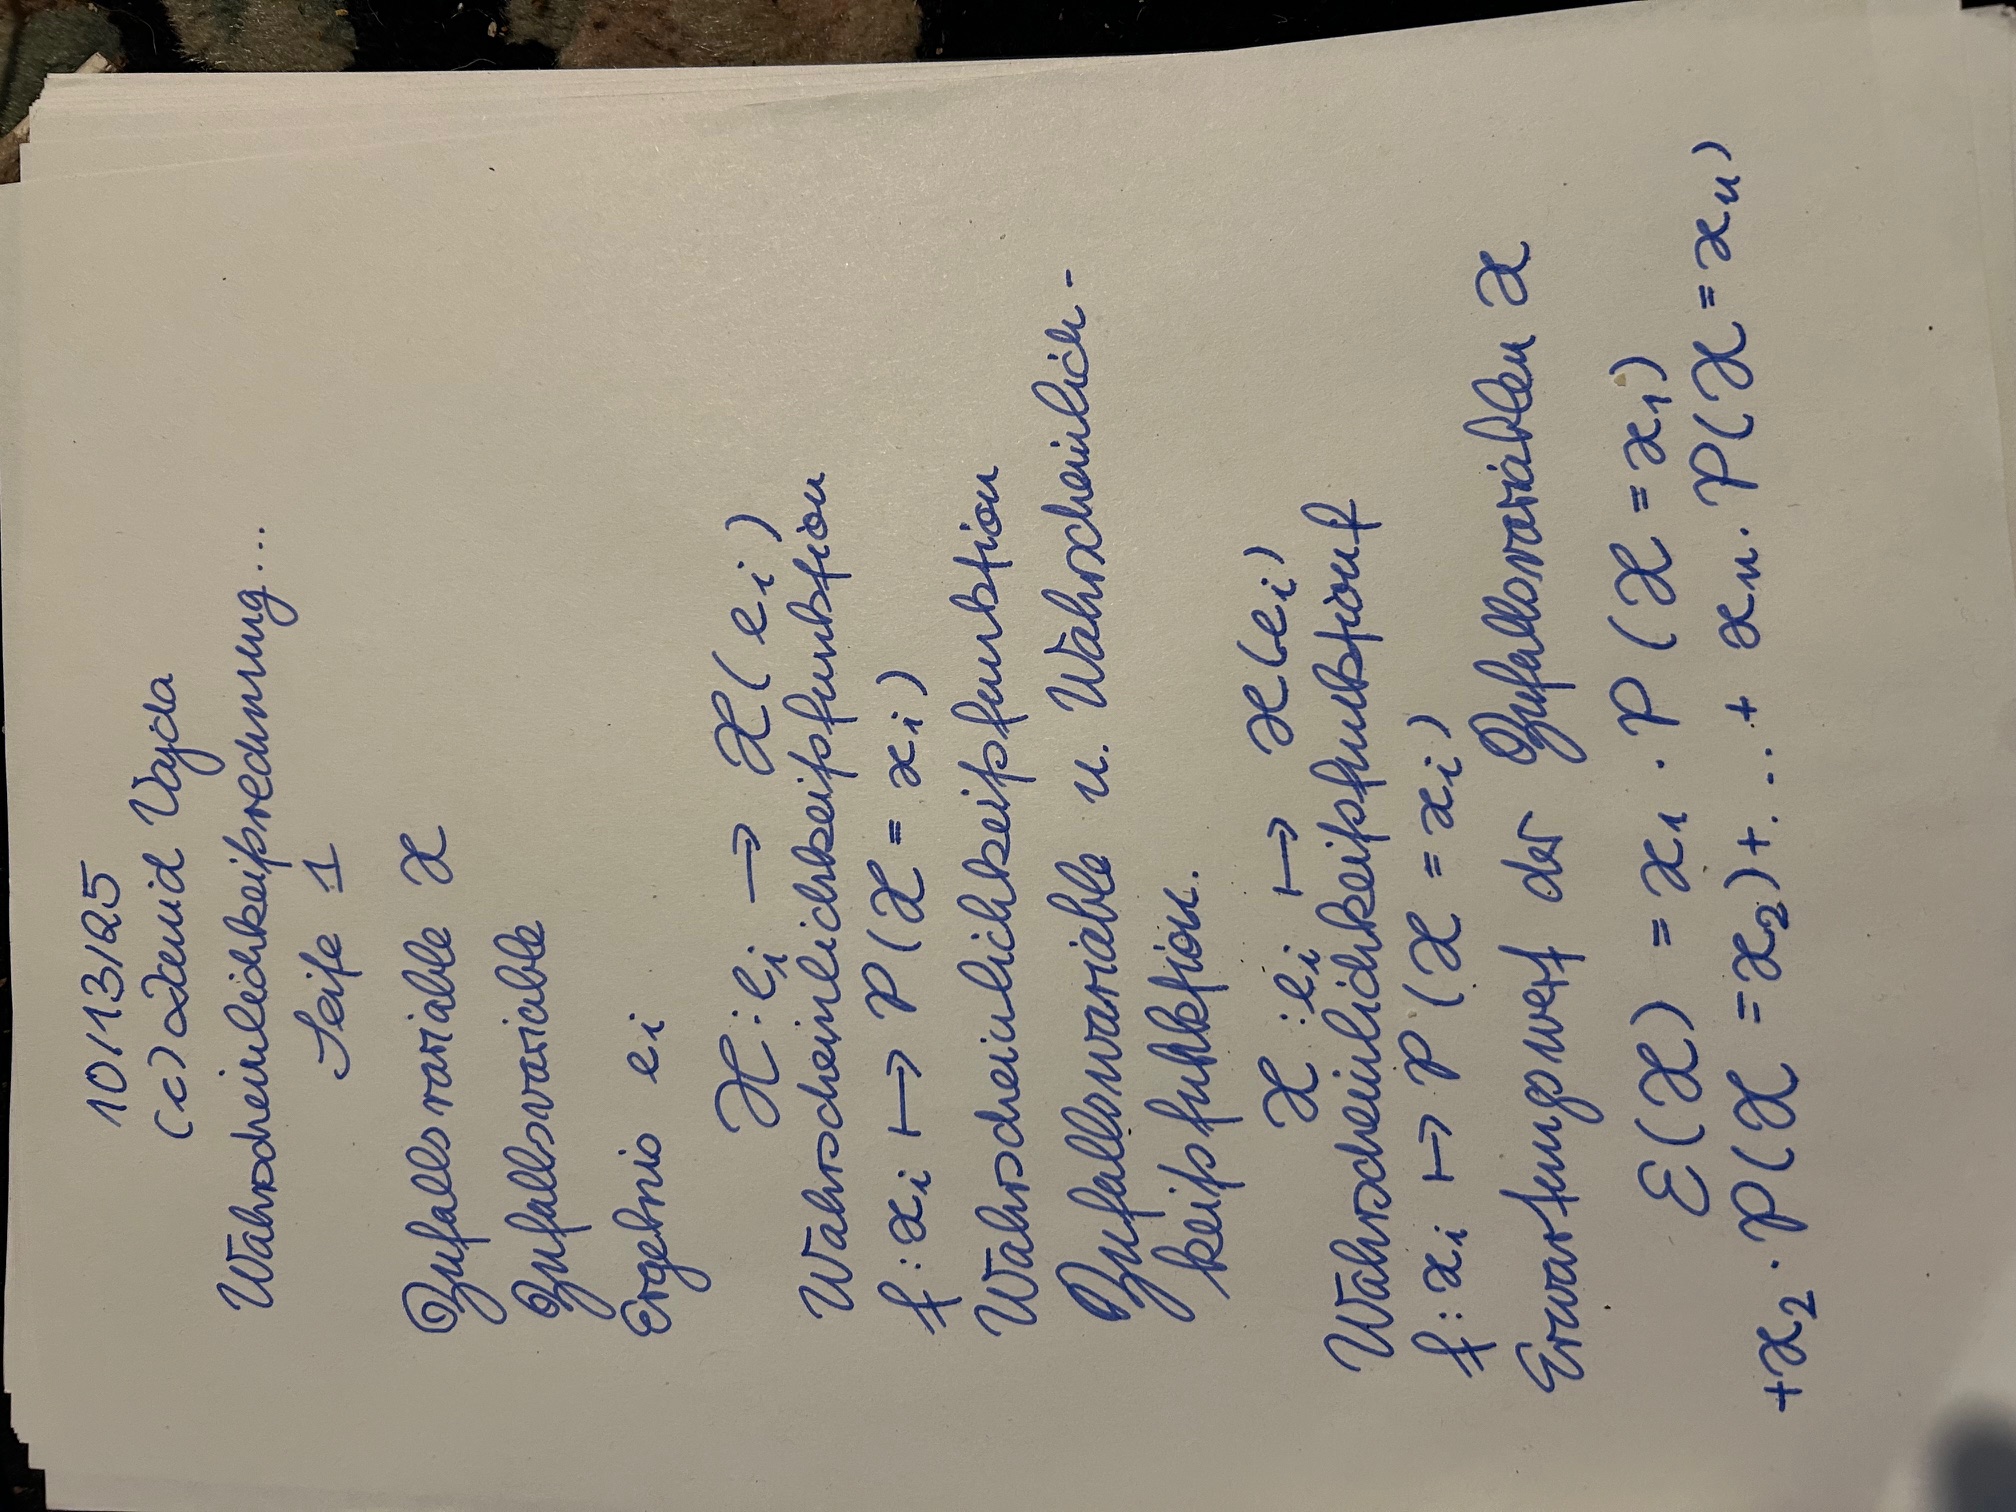 10/13/25
(c) David Vajda
Wahrscheinlichkeitsrechnung...
Seite 1
Zufallsvariable X
Zufallsvariable
Ergebnis ei
X: ei → X(ei)
Wahrscheinlichkeitsfunktion
f: xi ↦ P(X = xi)
Wahrscheinlichkeitsfunktion
Zufallsvariable u. Wahrscheinlich-
keitsfunktion.
X: ei ↦ X(ei)
Wahrscheinlichkeitsfunktion f
f: xi ↦ P(X = xi)
Erwartungswert der Zufallsvariablen X
E(X) = x1 · P(X = x1)
+x2 · P(X = x2)+...+ xn · P(X = xn)